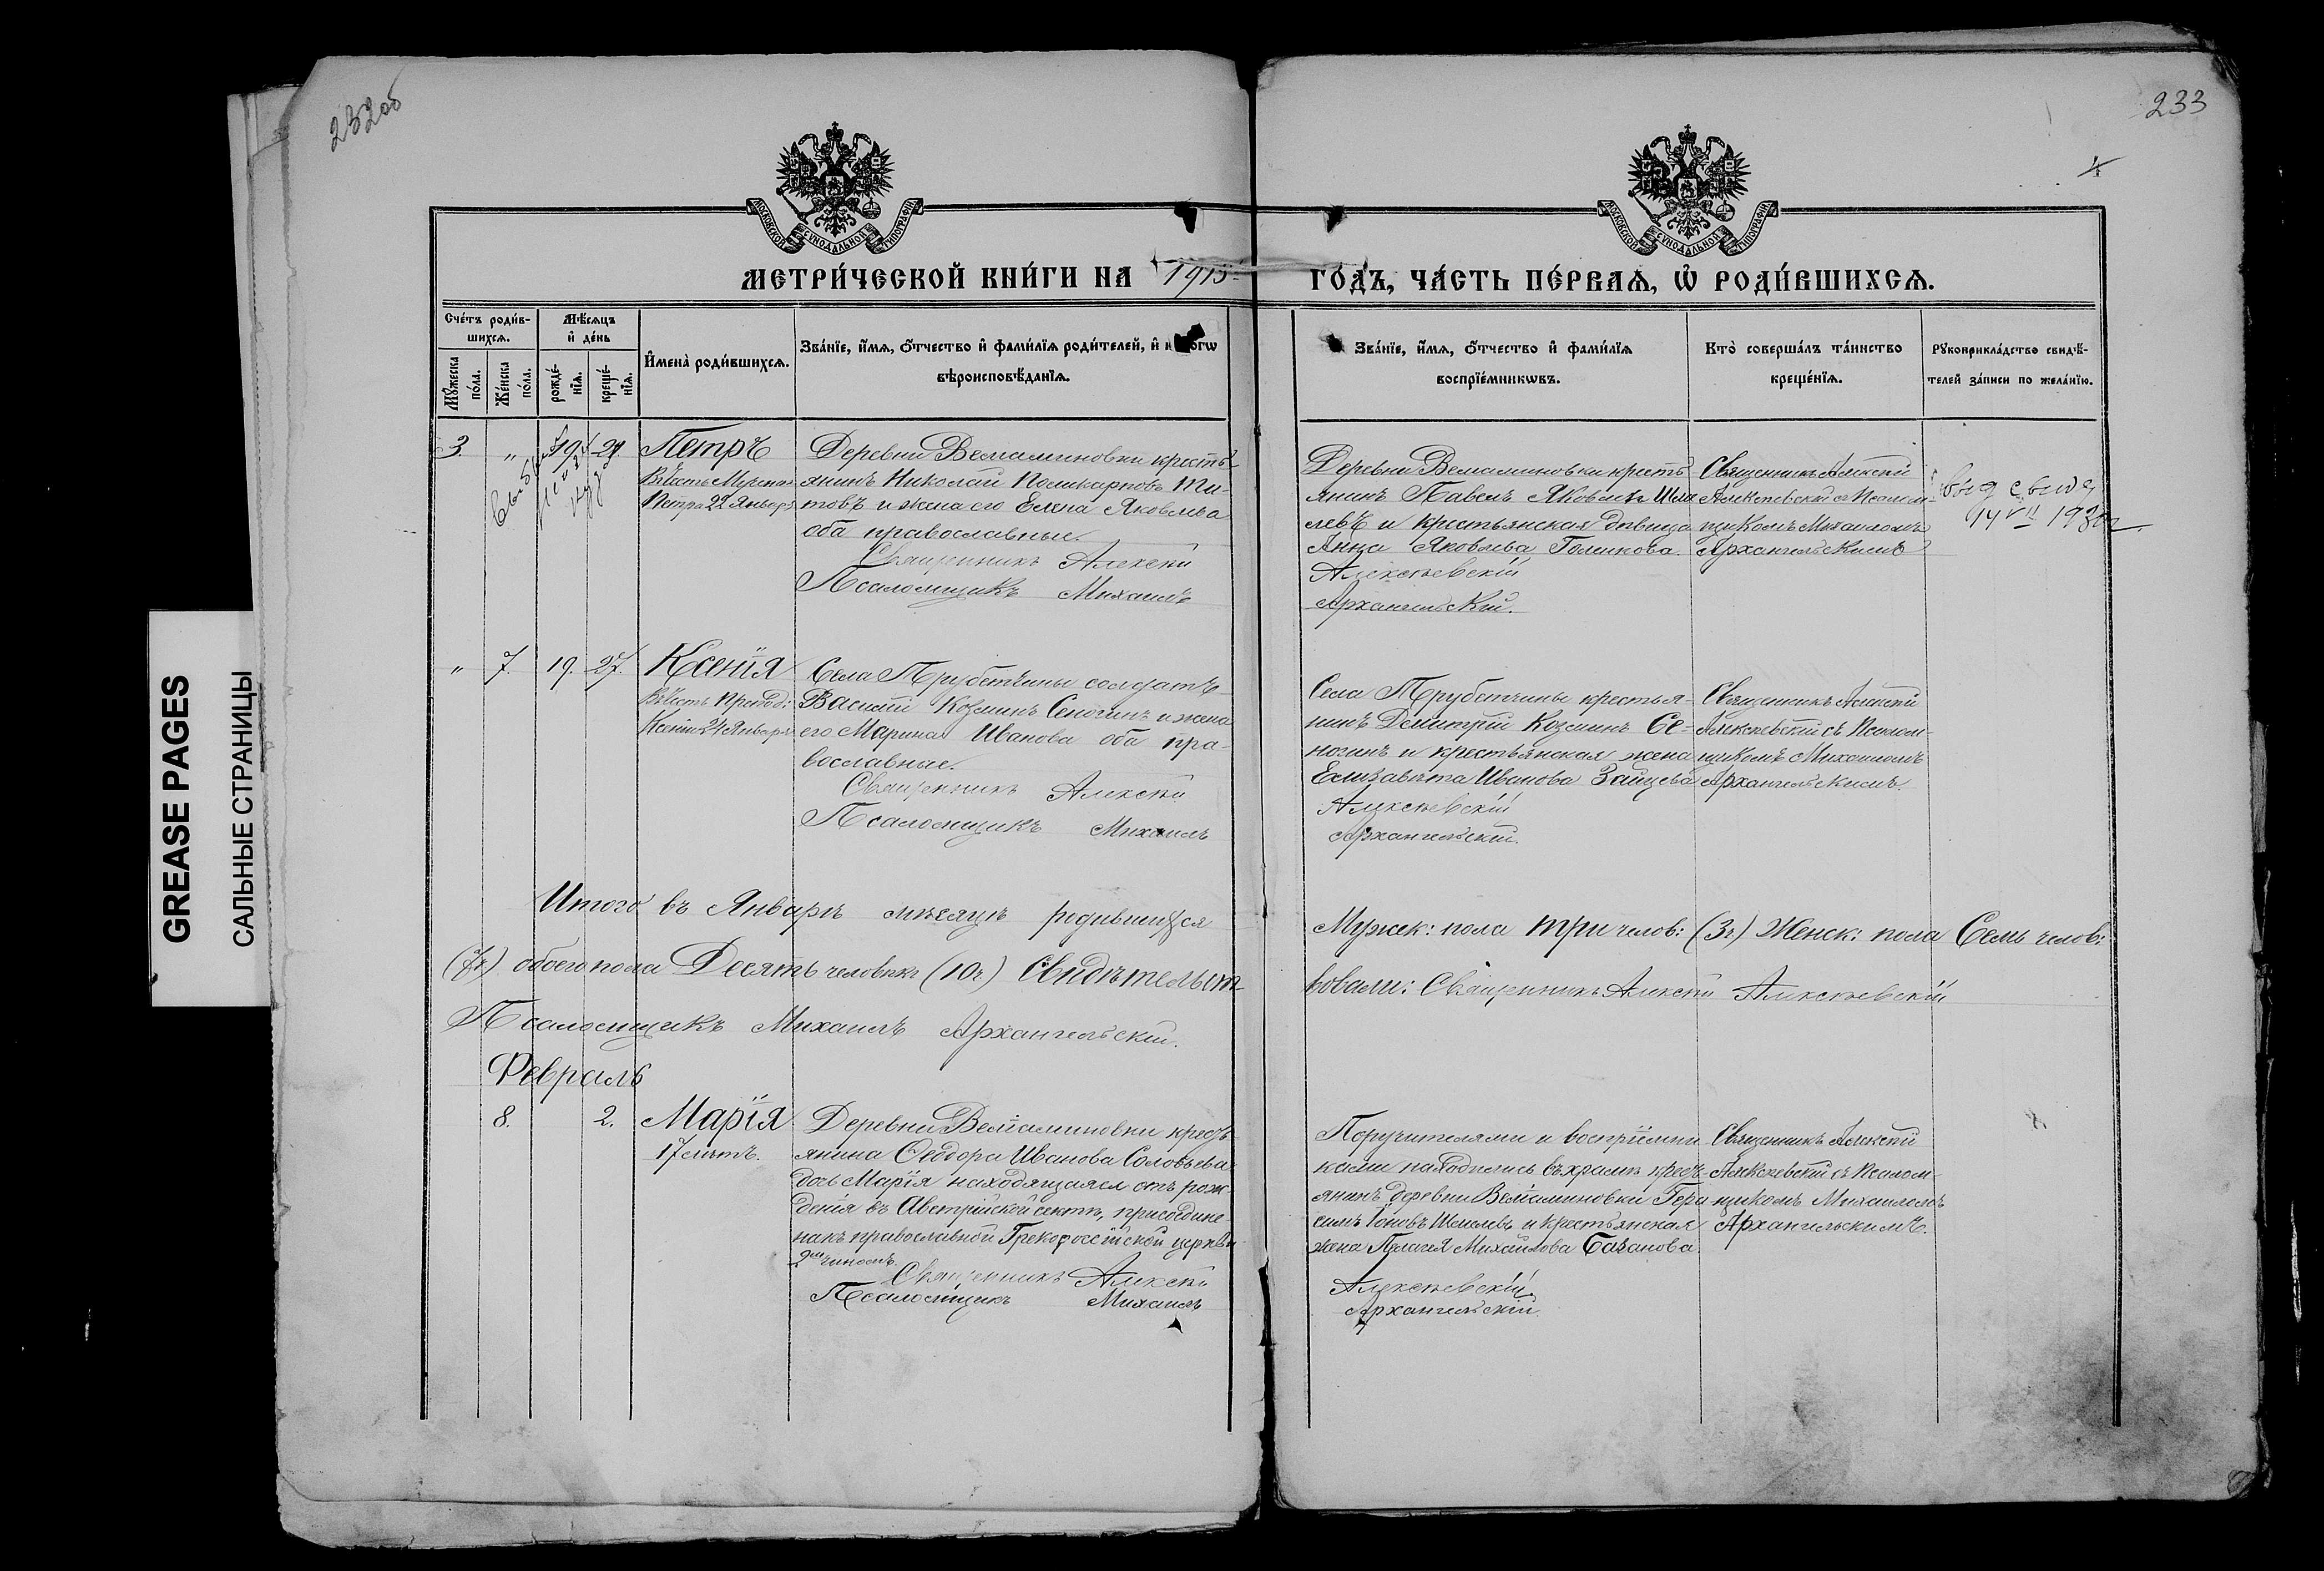 232об
233
4
GREASE PAGES
САЛЬНЫЕ СТРАНИЦЫ
МОСКОВСКОЙ СѴНОДАЛЬНОЙ ТИПОГРАФІИ
МОСКОВСКОЙ СѴНОДАЛЬНОЙ ТИПОГРАФІИ
МЕТРИ́ЧЕСКОЙ КНИ́ГИ НА 1915 ГО́ДЪ, ЧА́СТЬ ПЕ́РВАѦ, Ѡ҆ РОДИ́ВШИХСѦ.
Сче́тъ роди́в-
шихсѧ.
Мѣ́сѧцъ
и҆ де́нь
Мꙋ́жеска по́ла.
Же́нска по́ла.
рожде́-нїѧ.
креще́-нїѧ.
И҆мена̀ роди́вшихсѧ.
Зва́нїе, и҆́мѧ, ѻ҆́тчество и҆ фами́лїѧ роди́телей, и҆
вѣроисповѣ́данїѧ.
Зва́нїе, и҆́мѧ, ѻ҆́тчество и҆ фами́лїѧ
воспрїе́мникѡвъ.
Кто̀ соверша́лъ та́инство
креще́нїѧ.
Рꙋкоприкла́дство свидѣ́-
телей за́писи по жела́нїю.
3. " 19. 21 Петръ
Въ честь Мучен.
Петра 22 Января
Деревни Вельяминовки кресть-
янинъ Николай Поликарповъ Ти-
товъ и жена его Елена Яковлева
оба православные.
Священникъ Алексѣй
Псаломщикъ Михаилъ
Деревни Вельяминовки кресть-
янинъ Павелъ Яковлевъ Шме-
левъ и крестьянская дѣвица
Анна Яковлева Голикова
Алексѣевскій
Архангельскій.
Священникъ Алексѣй
Алексѣевскій съ Псалом-
щикомъ Михаиломъ
Архангельскимъ
14 VII 1930г
" 7. 19. 27. Ксенія
Въ честь Препод:
Ксеніи 24 Января
Села Трубетчины солдатъ
Василій Козминъ Сеногинъ и жена
его Марина Иванова оба пра-
вославные.
Священникъ Алексѣй
Псаломщикъ Михаилъ
Села Трубетчины крестья-
нинъ Димитрій Козминъ Се-
ногинъ и крестьянская жена
Елизавета Иванова Зайцева
Алексѣевскій
Архангельскій.
Священникъ Алексѣй
Алексѣевскій съ Псалом-
щикомъ Михаиломъ
Архангельскимъ.
Итого въ Январѣ мѣсяцѣ родившихся Мужск: пола три челов: (3ч.) Женск: пола Семь челов:
(7ч.) обоего пола Десять человѣкъ (10ч.) Свидѣтельст-вовали: Священникъ Алексѣй Алексѣевскій
Псаломщикъ Михаилъ Архангельскій.
Февраль
8. 2. Марія
17 лѣтъ.
Деревни Вельяминовки кресть-
янина Ѳеодора Иванова Соловьева
дочь Марія находящаяся отъ рож-
денія въ Австрійской сектѣ, присоедине-
на къ православной Грекороссійской церкви
2мъ чиномъ.
Священникъ Алексѣй
Псаломщикъ Михаилъ
Поручителями и воспріемни-
ками находились въ храмѣ кресть-
янинъ деревни Вельяминовки Гера-
симъ Іоновъ Шмелевъ и крестьянская
жена Пелагея Михайлова Базанова.
Алексѣевскій
Архангельскій.
Священникъ Алексѣй
Алексѣевскій съ Псалом-
щикомъ Михаиломъ
Архангельскимъ.